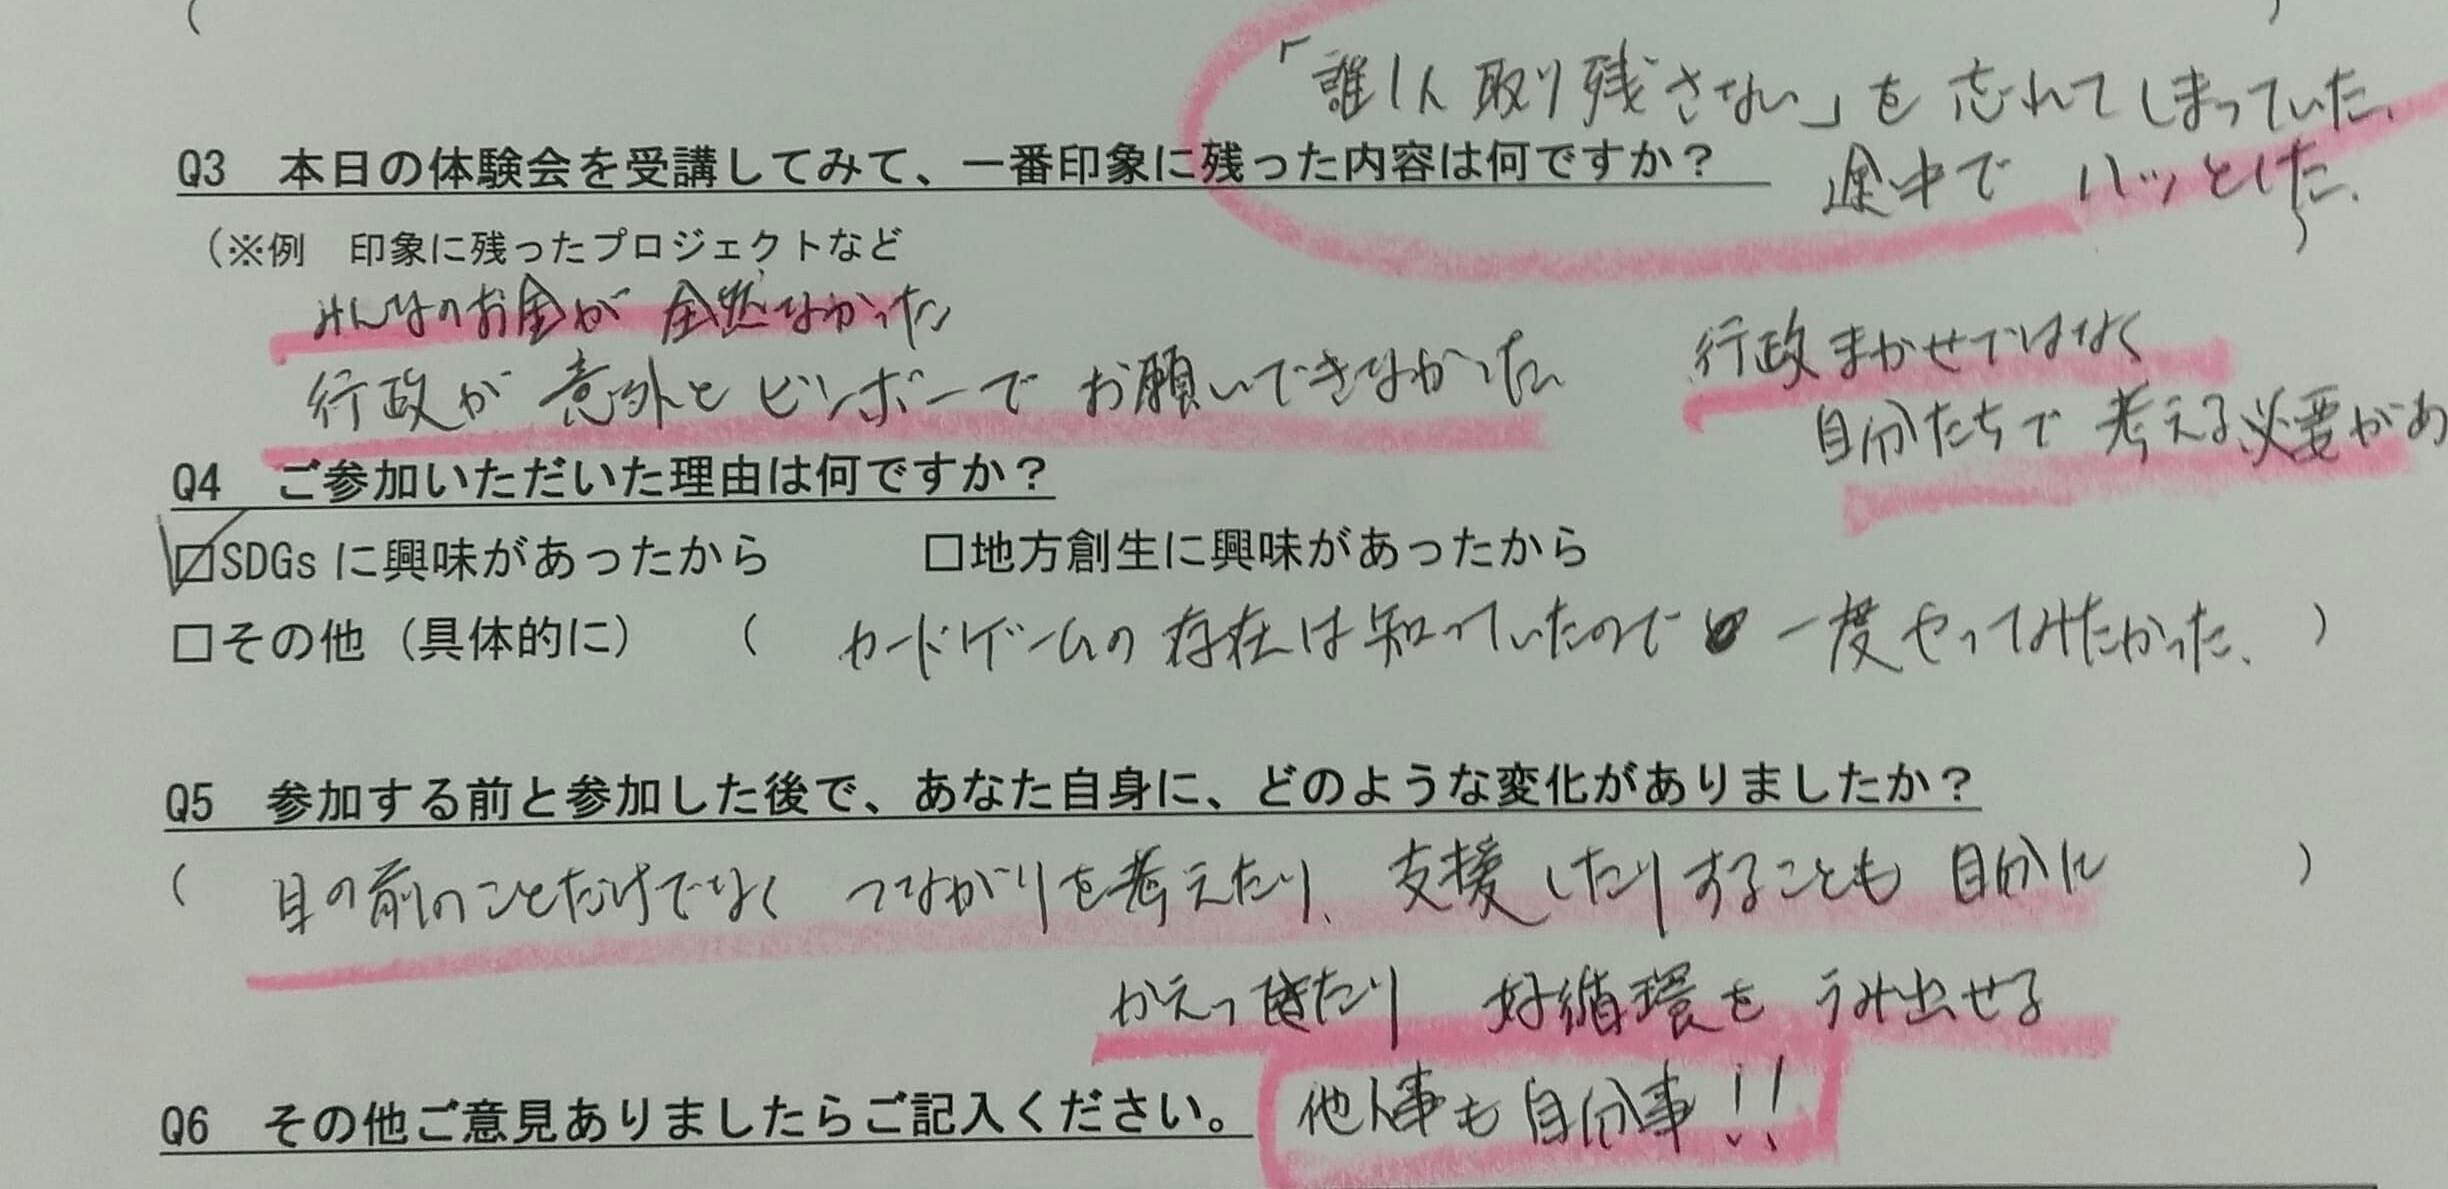 「誰1人取り残さない」を忘れてしまっていた.
Q3 本日の体験会を受講してみて、一番印象に残った内容は何ですか？
途中で ハッとした.
（※例 印象に残ったプロジェクトなど
）
みんなのお金が 全然なかった
行政が 意外と ビンボーで お願いできなかった
行政まかせではなく
自分たちで 考える必要があ
Q4 ご参加いただいた理由は何ですか？
☑SDGsに興味があったから □地方創生に興味があったから
□その他（具体的に） （ カードゲームの 存在は知っていたので 一度やってみたかった. ）
Q5 参加する前と参加した後で、あなた自身に、どのような変化がありましたか？
（ 目の前のことだけでなく つながりを考えたり、支援したりすることも 自分に ）
かえってきたり 好循環を うみ出せる
Q6 その他ご意見ありましたらご記入ください。
他人事も自分事!!